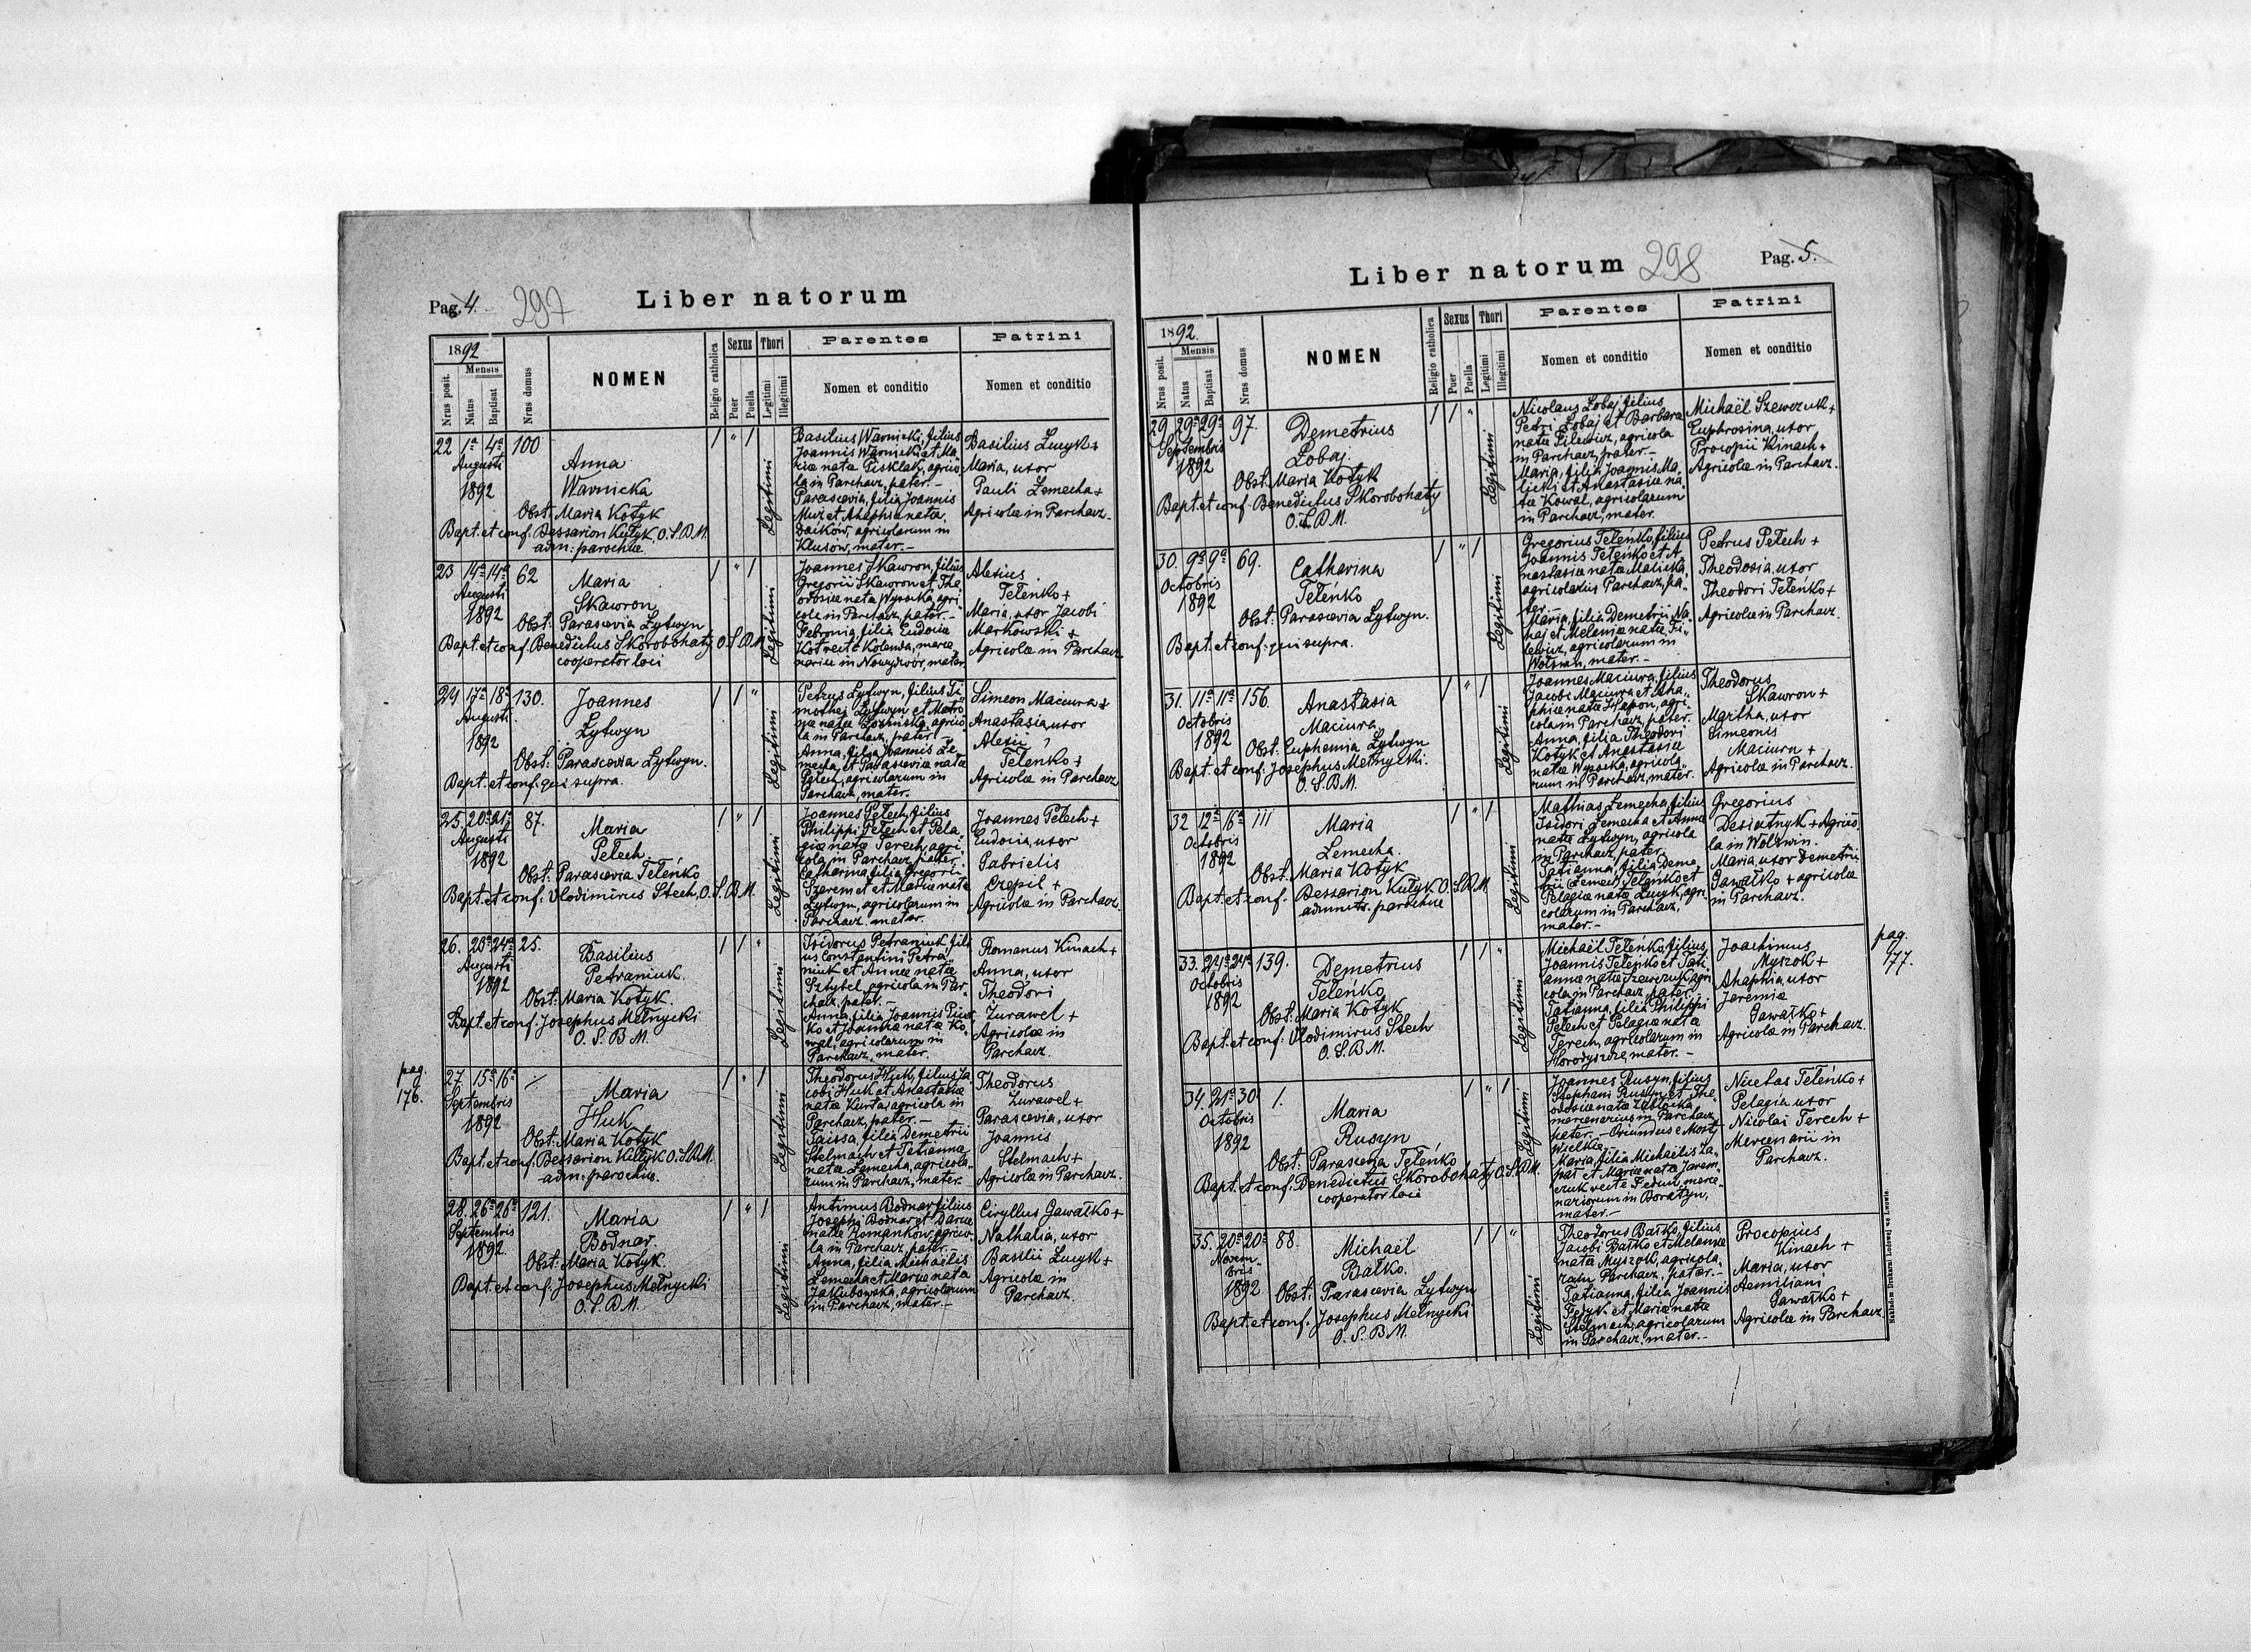 Pag. 4.
297
Liber natorum
1892
Nrus posit.
Mensis
Natus
Baptisat
Nrus domus
NOMEN
Religio catholica
Sexus
Puer
Puella
Thori
Legitimi
Illegitimi
Parentes
Nomen et conditio
Patrini
Nomen et conditio
22 1a 4a 100
Augusti
1892
Anna
Warnicka
Obst. Maria Kotyk
Bapt. et conf. Bessarion Kutyk, O.S.B.M.
adm. parochiæ.
Legitimi
Basilius Warnicki, filius
Joannis Warnicki et Ma-
riæ natæ Pisklak, agrico-
la in Parchacz, pater.-
Parascevia, filia Joannis
et Ahaphiæ natæ
agricolarum in
Klusow, mater.-
Basilius Lucyk +
Maria, uxor
Pauli Lemecha +
Agricolæ in Parchacz.
23 14a 14a 62
Augusti
1892
Maria
Skawron
Obst. Parascevia Lytwyn
Bapt. et conf. Benedictus Skorobohaty O.S.B.M.
cooperator loci
Legitimi
Joannes Skawron, filius
Gregorii Skawron et The-
odosiæ natæ Wysocka, agri-
cola in Parchacz, pater.-
Febronia, filia Eudociæ
Kot recte Kolenda, merce-
nariæ in Nowydwór, mater
Alexius
Teleńko +
Maria, uxor Jacobi
Markowski +
Agricolæ in Parchacz
24 17a 18a 130.
Augusti
1892
Joannes
Lytwyn
Obst. Parascevia Lytwyn.
Bapt. et conf. qui supra.
Legitimi
Petrus Lytwyn, filius Ti-
mothei Lytwyn et Motro-
næ natæ Lozinska, agrico-
la in Parchacz, pater.-
Anna, filia Joannis Le-
mecha, et Parasceviæ natæ
Pełech, agricolarum in
Parchacz, mater.
Simeon Maciura +
Anastasia, uxor
Alexii
Teleńko +
Agricolæ in Parchacz
25. 20a 21a 87.
Augusti
1892
Maria
Pełech
Obst. Parascevia Teleńko
Bapt. et conf. Vlodimirus Stech, O.S.B.M.
Legitimi
Joannes Pełech, filius
Philippi Pełech et Pela-
giæ natæ Terech, agri-
cola in Parchacz, pater.
Catharina, filia Gregorii
Szeremet et Mariæ natæ
Lytwyn, agricolarum in
Parchacz, mater.
Joannes Pełech +
Eudocia, uxor
Gabrielis
Czepil +
Agricolæ in Parchacz.
26. 23a 24a 25.
Augusti
1892
Basilius
Petraniuk
Obst. Maria Kotyk.
Bapt. et conf. Josephus Mełnycki
O.S.B.M.
Legitimi
Isidorus Petraniuk, fili-
us Constantini Petra-
niuk et Annæ natæ
Sztybel, agricola in Par-
chacz, pater.-
Anna, filia Joannis
et Joannæ natæ Ko-
wal, agricolarum in
Parchacz, mater.
Romanus Kinach +
Anna, uxor
Theodori
Żurawel +
Agricolæ in
Parchacz.
pag.
176.
27. 15a 16a
Septembris
1892
Maria
Huk
Obst. Maria Kotyk
Bapt. et conf. Bessarion Kutyk O.S.B.M.
adm. parochiæ.
Legitimi
Theodorus Huk, filius Ja-
cobi Huk et Anastasiæ
natæ Kurta, agricola in
Parchacz, pater.-
Taissa, filia Demetrii
Stelmach et Tatiannæ
natæ Lemecha, agricola-
rum in Parchacz, mater.
Theodorus
Żurawel +
Parascevia, uxor
Joannis
Stelmach +
Agricolæ in Parchacz.
28. 26a 26a 121.
Septembris
1892.
Maria
Bodnar.
Obst. Maria Kotyk.
Bapt. et conf. Josephus Mełnycki
O.S.B.M.
Legitimi
Antimus Bodnar, filius
Josephi Bodnar et Dariæ
natæ Romankow, agrico-
la in Parchacz, pater.-
Anna, filia Michaëlis
Lemecha et Mariæ natæ
Jakubowska, agricolarum
in Parchacz, mater.-
Ciryllus Gawałko +
Nathalia, uxor
Basilii Lucyk +
Agricolæ in
Parchacz.
Liber natorum
298
Pag. 5.
1892.
Nrus posit.
Mensis
Natus
Baptisat
Nrus domus
NOMEN
Religio catholica
Sexus
Puer
Puella
Thori
Legitimi
Illegitimi
Parentes
Nomen et conditio
Patrini
Nomen et conditio
29 29a 29a 97.
Septembris
1892
Demetrius
Lobaj.
Obst. Maria Kotyk
Bapt. et conf. Benedictus Skorobohaty
O.S.B.M.
Legitimi
Nicolaus Lobaj, filius
Petri Lobaj et Barbaræ
natæ Filewicz, agricola
in Parchacz, pater.-
Maria, filia Joannis Ma-
licki et Anastasiæ na-
tæ Kowal, agricolarum
in Parchacz, mater.
Michaël Szewczuk +
Euphrosina, uxor
Procopii Kinach +
Agricolæ in Parchacz.
30. 9a 9a 69.
Octobris
1892
Catharina
Teleńko
Obst. Parascevia Lytwyn.
Bapt. et conf. qui supra.
Legitimi
Gregorius Teleńko, filius
Joannis Teleńko et A-
nastasiæ natæ Malicka,
agricolarius Parchacz, pa-
ter.-
Maria, filia Demetrii Na-
haj et Melaniæ natæ Fi-
lewicz, agricolarum in
Wolswin, mater.-
Petrus Pełech +
Theodosia, uxor
Theodori Teleńko +
Agricolæ in Parchacz.
31. 11a 11a 156.
Octobris
1892
Anastasia
Maciura
Obst. Euphemia Lytwyn
Bapt. et conf. Josephus Mełnycki.
O.S.B.M.
Legitimi
Joannes Maciura, filius
Jacobi Maciura et Aha-
phiæ natæ Hapon, agri-
cola in Parchacz, pater.
Anna, filia Theodori
Kotyk et Anastasiæ
natæ Wysocka, agricola-
rum in Parchacz, mater.
Theodorus
Skawron +
Martha, uxor
Simeonis
Maciura +
Agricolæ in Parchacz.
32 12a 16a 111
Octobris
1892
Maria
Lemecha.
Obst. Maria Kotyk
Bapt. et conf. Bessarion Kutyk O.S.B.M.
administr. parochiæ
Legitimi
Mathias Lemecha, filius
Isidori Lemecha et Annæ
natæ Lytwyn, agricola
in Parchacz, pater.
Tatianna, filia Deme-
trii Teleńko et
Pelagiæ natæ Lucyk, agri-
colarum in Parchacz,
mater.-
Gregorius
Desiatnyk + Agrico-
la in Wolswin.
Maria, uxor Demetrii
Gawałko + agricolæ
in Parchacz.
33. 24a 24a 139.
Octobris
1892
Demetrius
Teleńko
Obst. Maria Kotyk
Bapt. et conf. Vlodimirus Stech
O.S.B.M.
Legitimi
Michaël Teleńko, filius
Joannis Teleńko et Tati-
annæ natæ Szewczuk, agri-
cola in Parchacz, pater.
Tatianna, filia Philippi
Pełech et Pelagiæ natæ
Terech, agricolarum in
Horodyszcze, mater.-
Joachimus
Myszok +
Ahaphia, uxor
Jeremiæ
Gawałko +
Agricolæ in Parchacz.
pag.
177.
34. 21a 30 1.
Octobris
1892
Maria
Rusyn
Obst. Parascevia Teleńko
Bapt. et conf. Benedictus Skorobohaty O.S.B.M.
cooperator loci
Legitimi
Joannes Rusyn, filius
Stephani Rusyn et The-
odosiæ natæ Zabłocka,
mercenarius in Parchacz,
pater.- Oriundus e Mosty
Wielkie.
Maria, filia Michaëlis Ła-
pat et Mariæ natæ Jarem-
czuk recte Fedun, merce-
nariorum in Boratyn,
mater.-
Nicetas Teleńko +
Pelagia uxor
Nicolai Terech +
Mercenarii in
Parchacz.
35. 20a 20a 88.
Novem-
bris
1892
Michaël
Bałko.
Obst. Parascevia Lytwyn
Bapt. et conf. Josephus Mełnycki
O.S.B.M.
Legitimi
Theodorus Bałko, filius
Jacobi Bałko et Melaniæ
natæ Myszok, agricola
Parchacz, pater.-
Tatianna, filia Joannis
Fedyk et Mariæ natæ
Stelmach, agricolarum
in Parchacz, mater.-
Procopius
Kinach +
Maria, uxor
Aemiliani
Gawałko +
Agricolæ in Parchacz.
Nakładem Drukarni Ludowej we Lwowie.